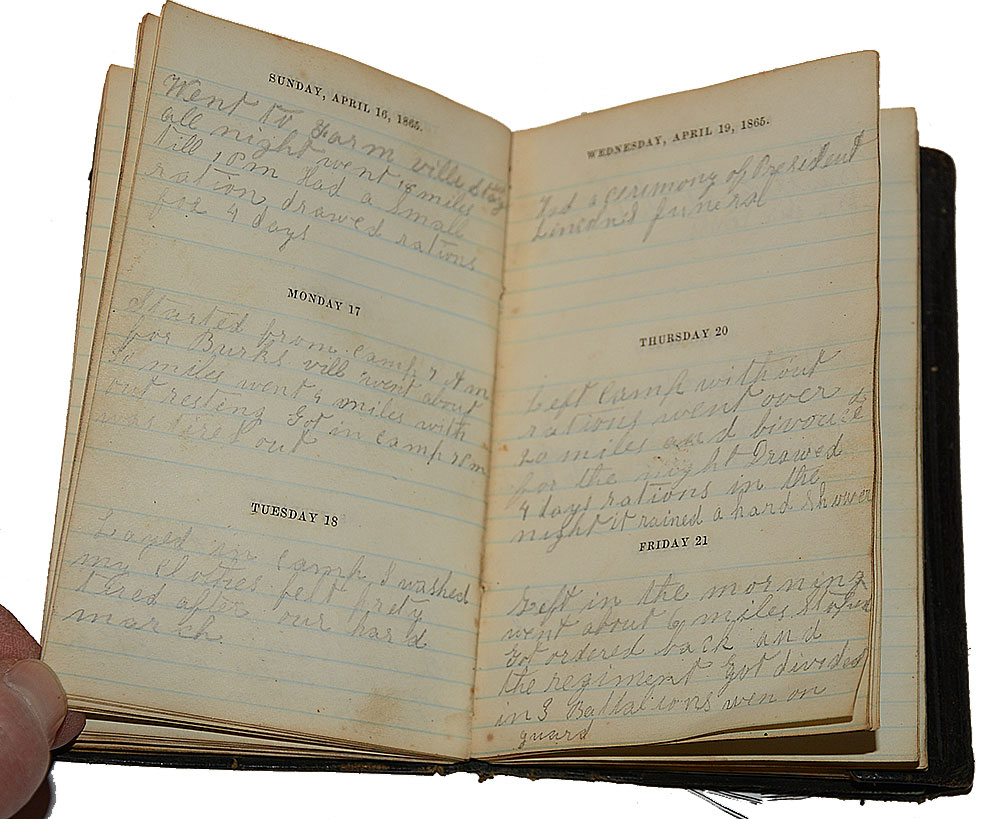 SUNDAY, APRIL 16, 1865.
Went to Farm ville stay
all night went 18 miles
till 1 P M Had a small
ration drawed rations
for 4 days
MONDAY 17
Started from camp 7 A m
for Burks vill went about
miles went 4 miles with
out resting Got in camp P m
was tired out
TUESDAY 18
Layed in camp I washed
my clothes felt prety
tired after our hard
march
WEDNESDAY, APRIL 19, 1865.
Had a ceremony of President
Lincons funeral
THURSDAY 20
Left camp without
rations went over
20 miles and bivouced
for the night Drawed
4 days rations in the
night it rained a hard shower
FRIDAY 21
Left in the morning
went about 6 miles
Got ordered back and
the regiment Got divided
in 3 Battalions wen on
guard